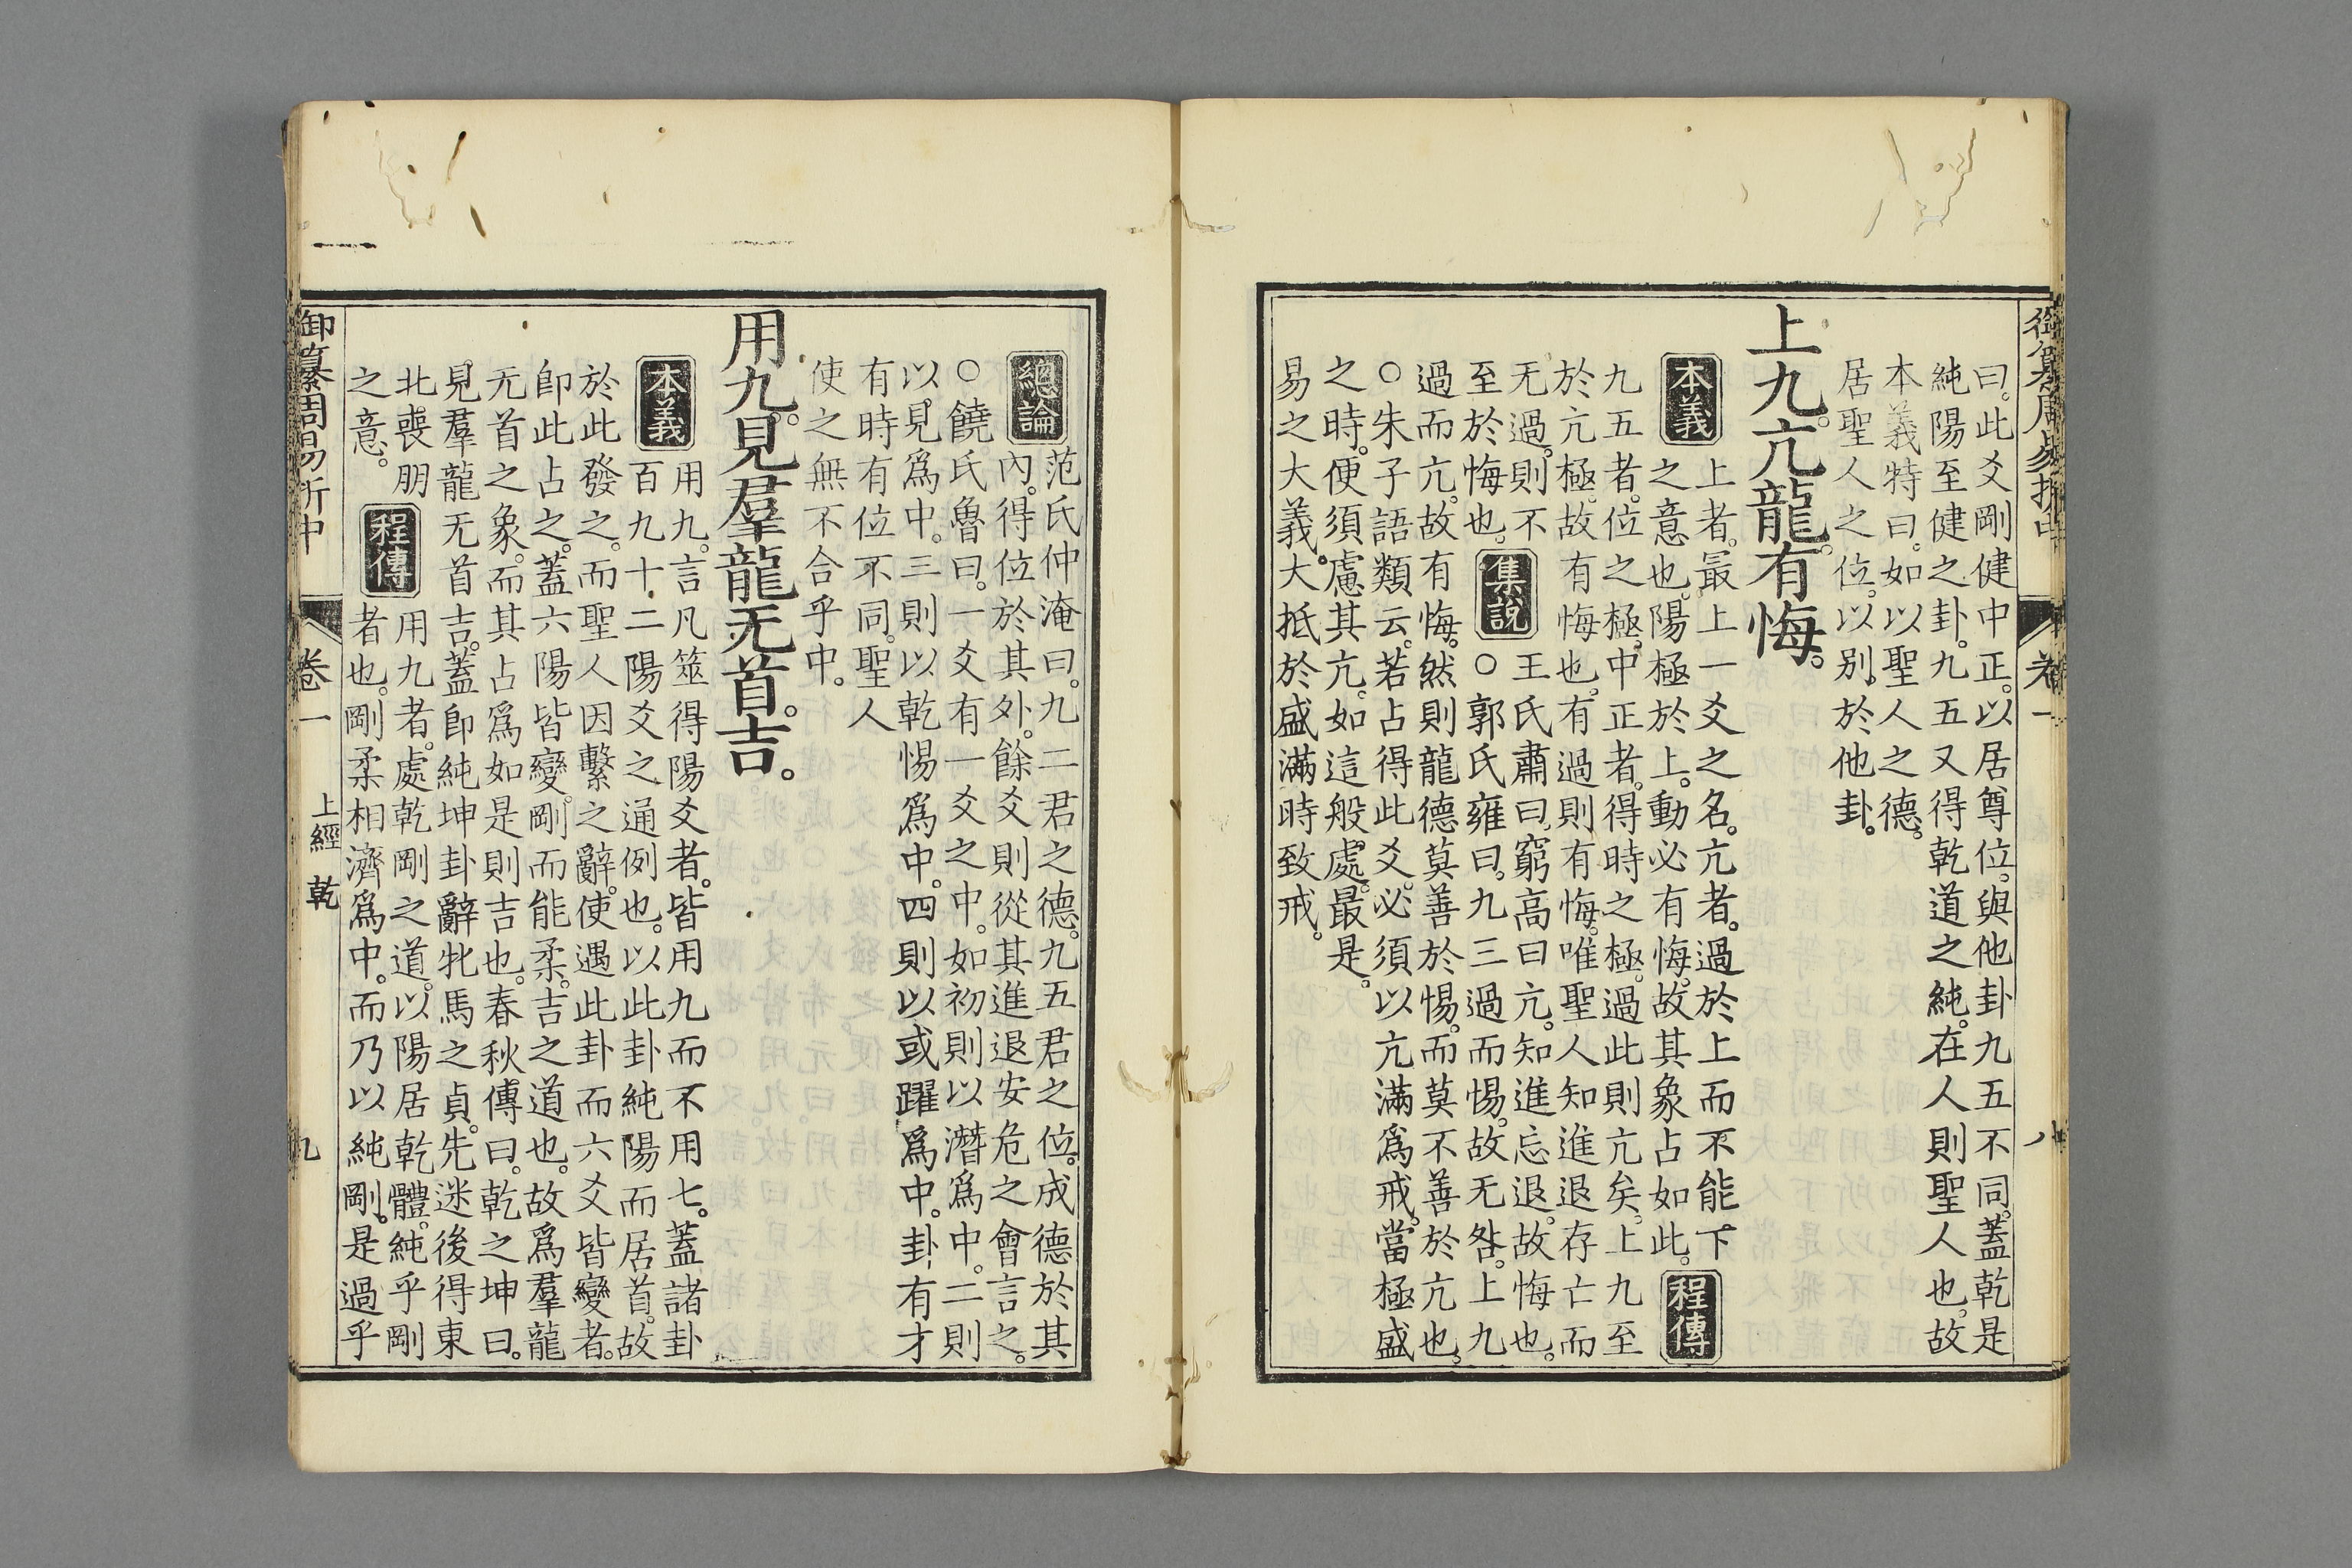 御纂周易折中 卷一 八
曰。此爻剛健中正。以居尊位。與他卦九五不同。蓋乾是
純陽至健之卦。九五又得乾道之純。在人則聖人也。故
本義特曰。如以聖人之德。
居聖人之位。以别於他卦。
上九。亢龍。有悔。
本義
上者。最上一爻之名。亢者。過於上而不能下
之意也。陽極於上。動必有悔。故其象占如此。
程傳
九五者。位之極。中正者。得時之極。過此則亢矣。上九至
於亢極。故有悔也。有過則有悔。唯聖人知進退存亡而
无過。則不
至於悔也。
集說
王氏肅曰。窮高曰亢。知進忘退。故悔也。
○郭氏雍曰。九三過而惕。故无咎。上九
過而亢。故有悔。然則龍德莫善於惕。而莫不善於亢也。
○朱子語類云。若占得此爻。必須以亢滿爲戒。當極盛
之時。便須慮其亢。如這般處。最是
易之大義。大抵於盛滿時致戒。
總論
范氏仲淹曰。九二君之德。九五君之位。成德於其
內。得位於其外。餘爻則從其進退安危之會言之。
○饒氏魯曰。一爻有一爻之中。如初則以潛爲中。二則
以見爲中。三則以乾惕爲中。四則以或躍爲中。卦有才
有時有位不同。聖人
使之無不合乎中。
用九。見羣龍无首。吉。
本義
用九。言凡筮得陽爻者。皆用九而不用七。蓋諸卦
百九十二陽爻之通例也。以此卦純陽而居首。故
於此發之。而聖人因繫之辭。使遇此卦而六爻皆變者。
卽此占之。蓋六陽皆變。剛而能柔。吉之道也。故爲羣龍
无首之象。而其占爲如是則吉也。春秋傳曰。乾之坤曰。
見羣龍无首吉。蓋卽純坤卦辭牝馬之貞。先迷後得東
北喪朋
之意。
程傳
用九者。處乾剛之道。以陽居乾體。純乎剛
者也。剛柔相濟爲中。而乃以純剛。是過乎
御纂周易折中 卷一 上經 乾 九